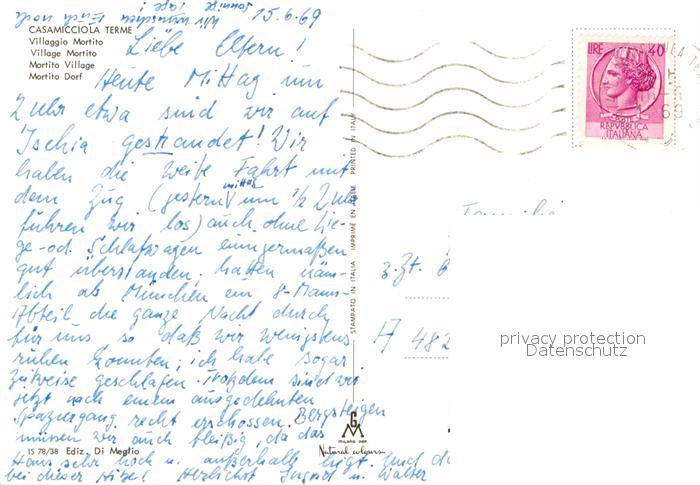 Wir wünschen Euch noch
sonnige Tage!
15.6.69
CASAMICCIOLA TERME
Villaggio Mortito
Village Mortito
Mortito Village
Mortito Dorf
Liebe Eltern!
Heute Mittag um
2 Uhr etwa sind wir auf
Ischia gestrandet! Wir
haben die weite Fahrt mit
dem Zug (gestern mittag um ½ 2 Uhr
fuhren wir los) auch ohne Lie-
ge- od. Schlafwagen einigermaßen
gut überstanden, hatten näm-
lich ab München ein 8-Mann-
Abteil die ganze Nacht durch
für uns so daß wir wenigstens
ruhen konnten; ich habe sogar
zeitweise geschlafen. Trotzdem sind wir
jetzt nach einem ausgedehnten
Spaziergang recht erschossen. Bergsteigen
müssen wir auch fleißig, da das
Haus sehr hoch u. außerhalb liegt. Und das
bei dieser Hitze! Herzlichst Ingrid u. Walter
IS 78/38 Ediz. Di Meglio
STAMPATO IN ITALIA IMPRIMÉ EN ITALIE PRINTED IN ITALY
GM
MILANO DEP.
Natural colours
LIRE 40
REPVBBLICA
ITALIANA
69
Familie
z. Zt.
A 482
privacy protection
Datenschutz